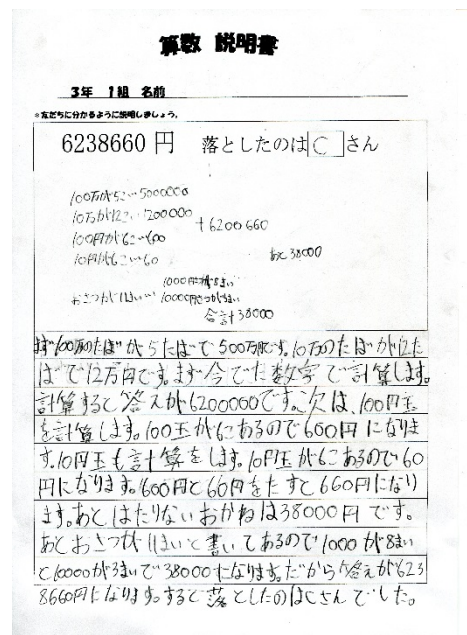 算数 説明書
3年 1組 名前
*友だちに分かるように説明しましょう。
6238660円 落としたのは C さん
100万が5こ…5000000
10万が12こ…1200000
+6200660
100円が6こ…600
10円が6こ…60
あと38000
1000円札8まい
おさつが11まい… 10000円さつが3まい
合計38000
まず100万のたばが5たばで500万円です。10万のたばが12た
ばで12万円です。まず今でた数字で計算します。
計算すると答えが6200000です。次は、100円玉
を計算します。100玉が6こあるので600円になりま
す。10円玉も計算をします。10円玉が6こあるので60
円になります。600円と60円をたすと660円になり
ます。あとはたりないおかねは38000円です。
あとおさつが11まいと書いてあるので1000が8まい
と10000が3まいで38000になります。だから答えが623
8660円になります。すると落としたのはCさんでした。